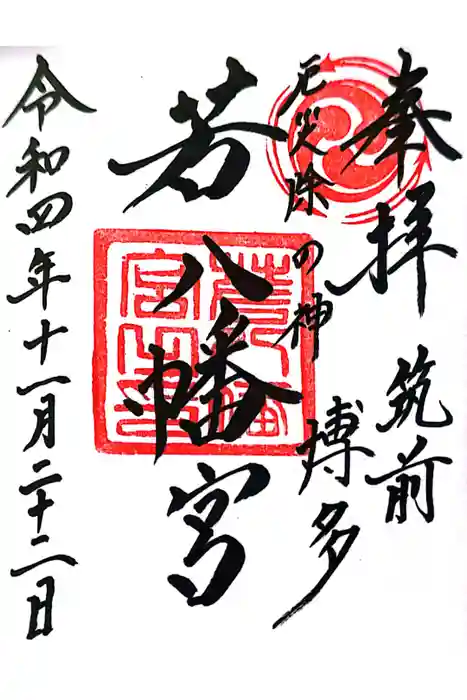 奉拝
筑前
厄災除の神
博多
若八幡宮
令和四年十一月二十二日